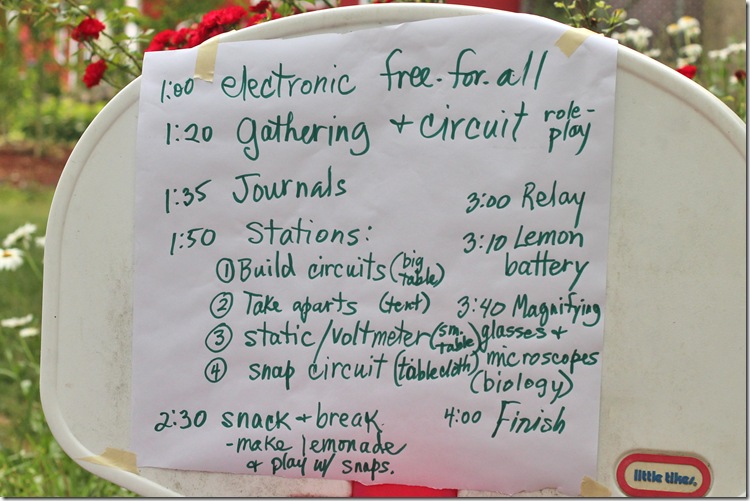 1:00 electronic free-for-all
1:20 gathering + circuit role-play
1:35 Journals
1:50 Stations:
① Build circuits (big table)
② Take aparts (tent)
③ static/voltmeter (sm. table)
④ snap circuit (tablecloth)
2:30 snack + break
-make lemonade
+ play w/ snaps.
3:00 Relay
3:10 Lemon
battery
3:40 Magnifying
glasses +
microscopes
(biology)
4:00 Finish
little tikes